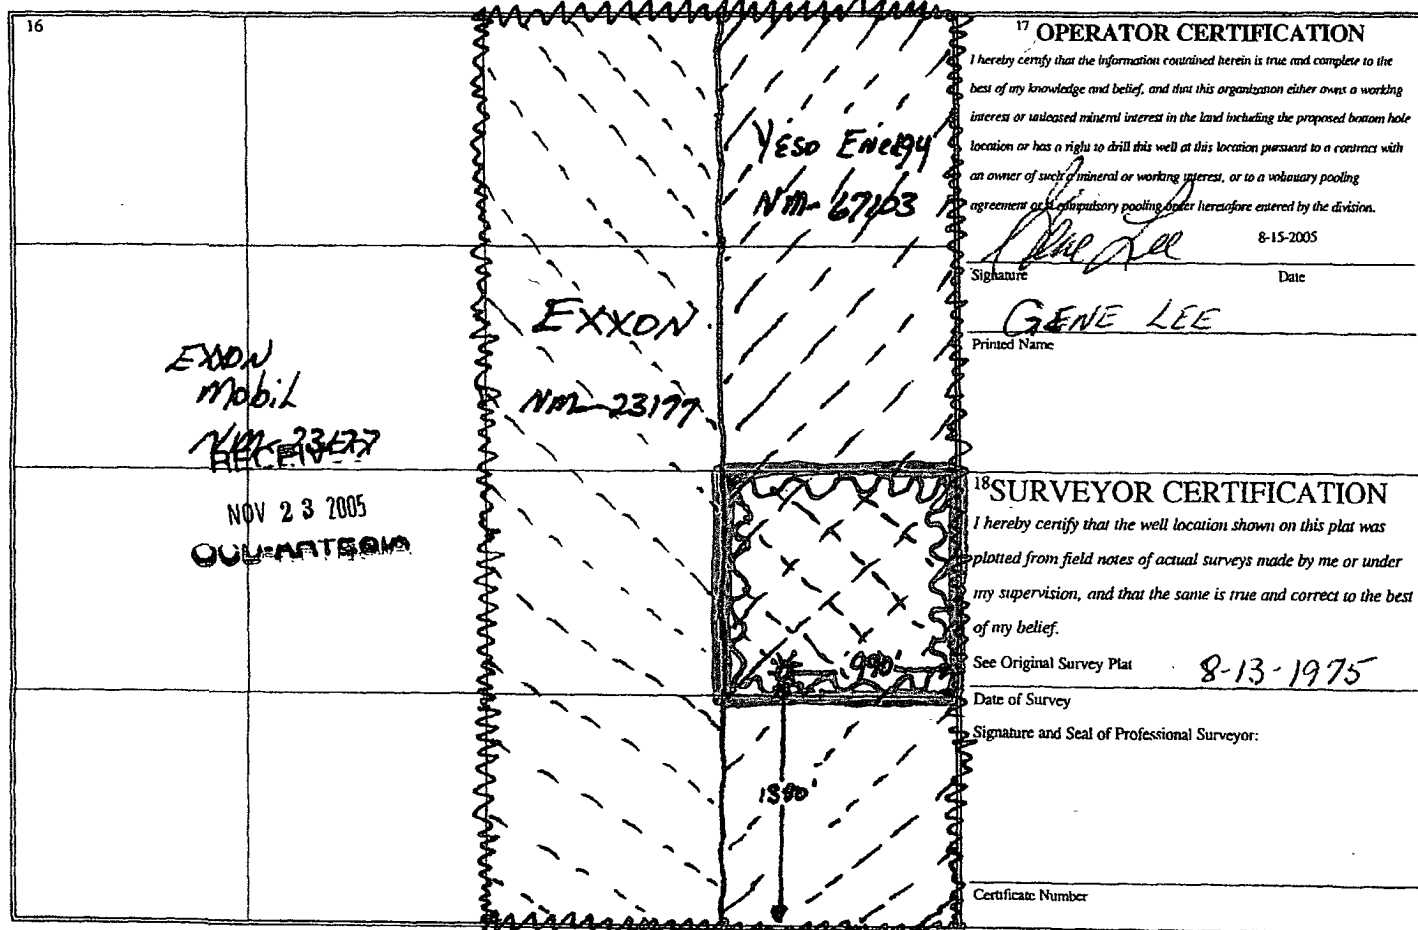 16
Yeso Energy
NM-67103
EXXON
NM-23177
EXXON
Mobil
NM-23177
RECEIVED
NOV 23 2005
OCD-ARTESIA
990'
17 OPERATOR CERTIFICATION
I hereby certify that the information contained herein is true and complete to the
best of my knowledge and belief, and that this organization either owns a working
interest or unleased mineral interest in the land including the proposed bottom hole
location or has a right to drill this well at this location pursuant to a contract with
an owner of such a mineral or working interest, or to a voluntary pooling
agreement or a compulsory pooling order heretofore entered by the division.
Gene Lee 8-15-2005
Signature Date
GENE LEE
Printed Name
18 SURVEYOR CERTIFICATION
I hereby certify that the well location shown on this plat was
plotted from field notes of actual surveys made by me or under
my supervision, and that the same is true and correct to the best
of my belief.
See Original Survey Plat 8-13-1975
Date of Survey
Signature and Seal of Professional Surveyor:
Certificate Number